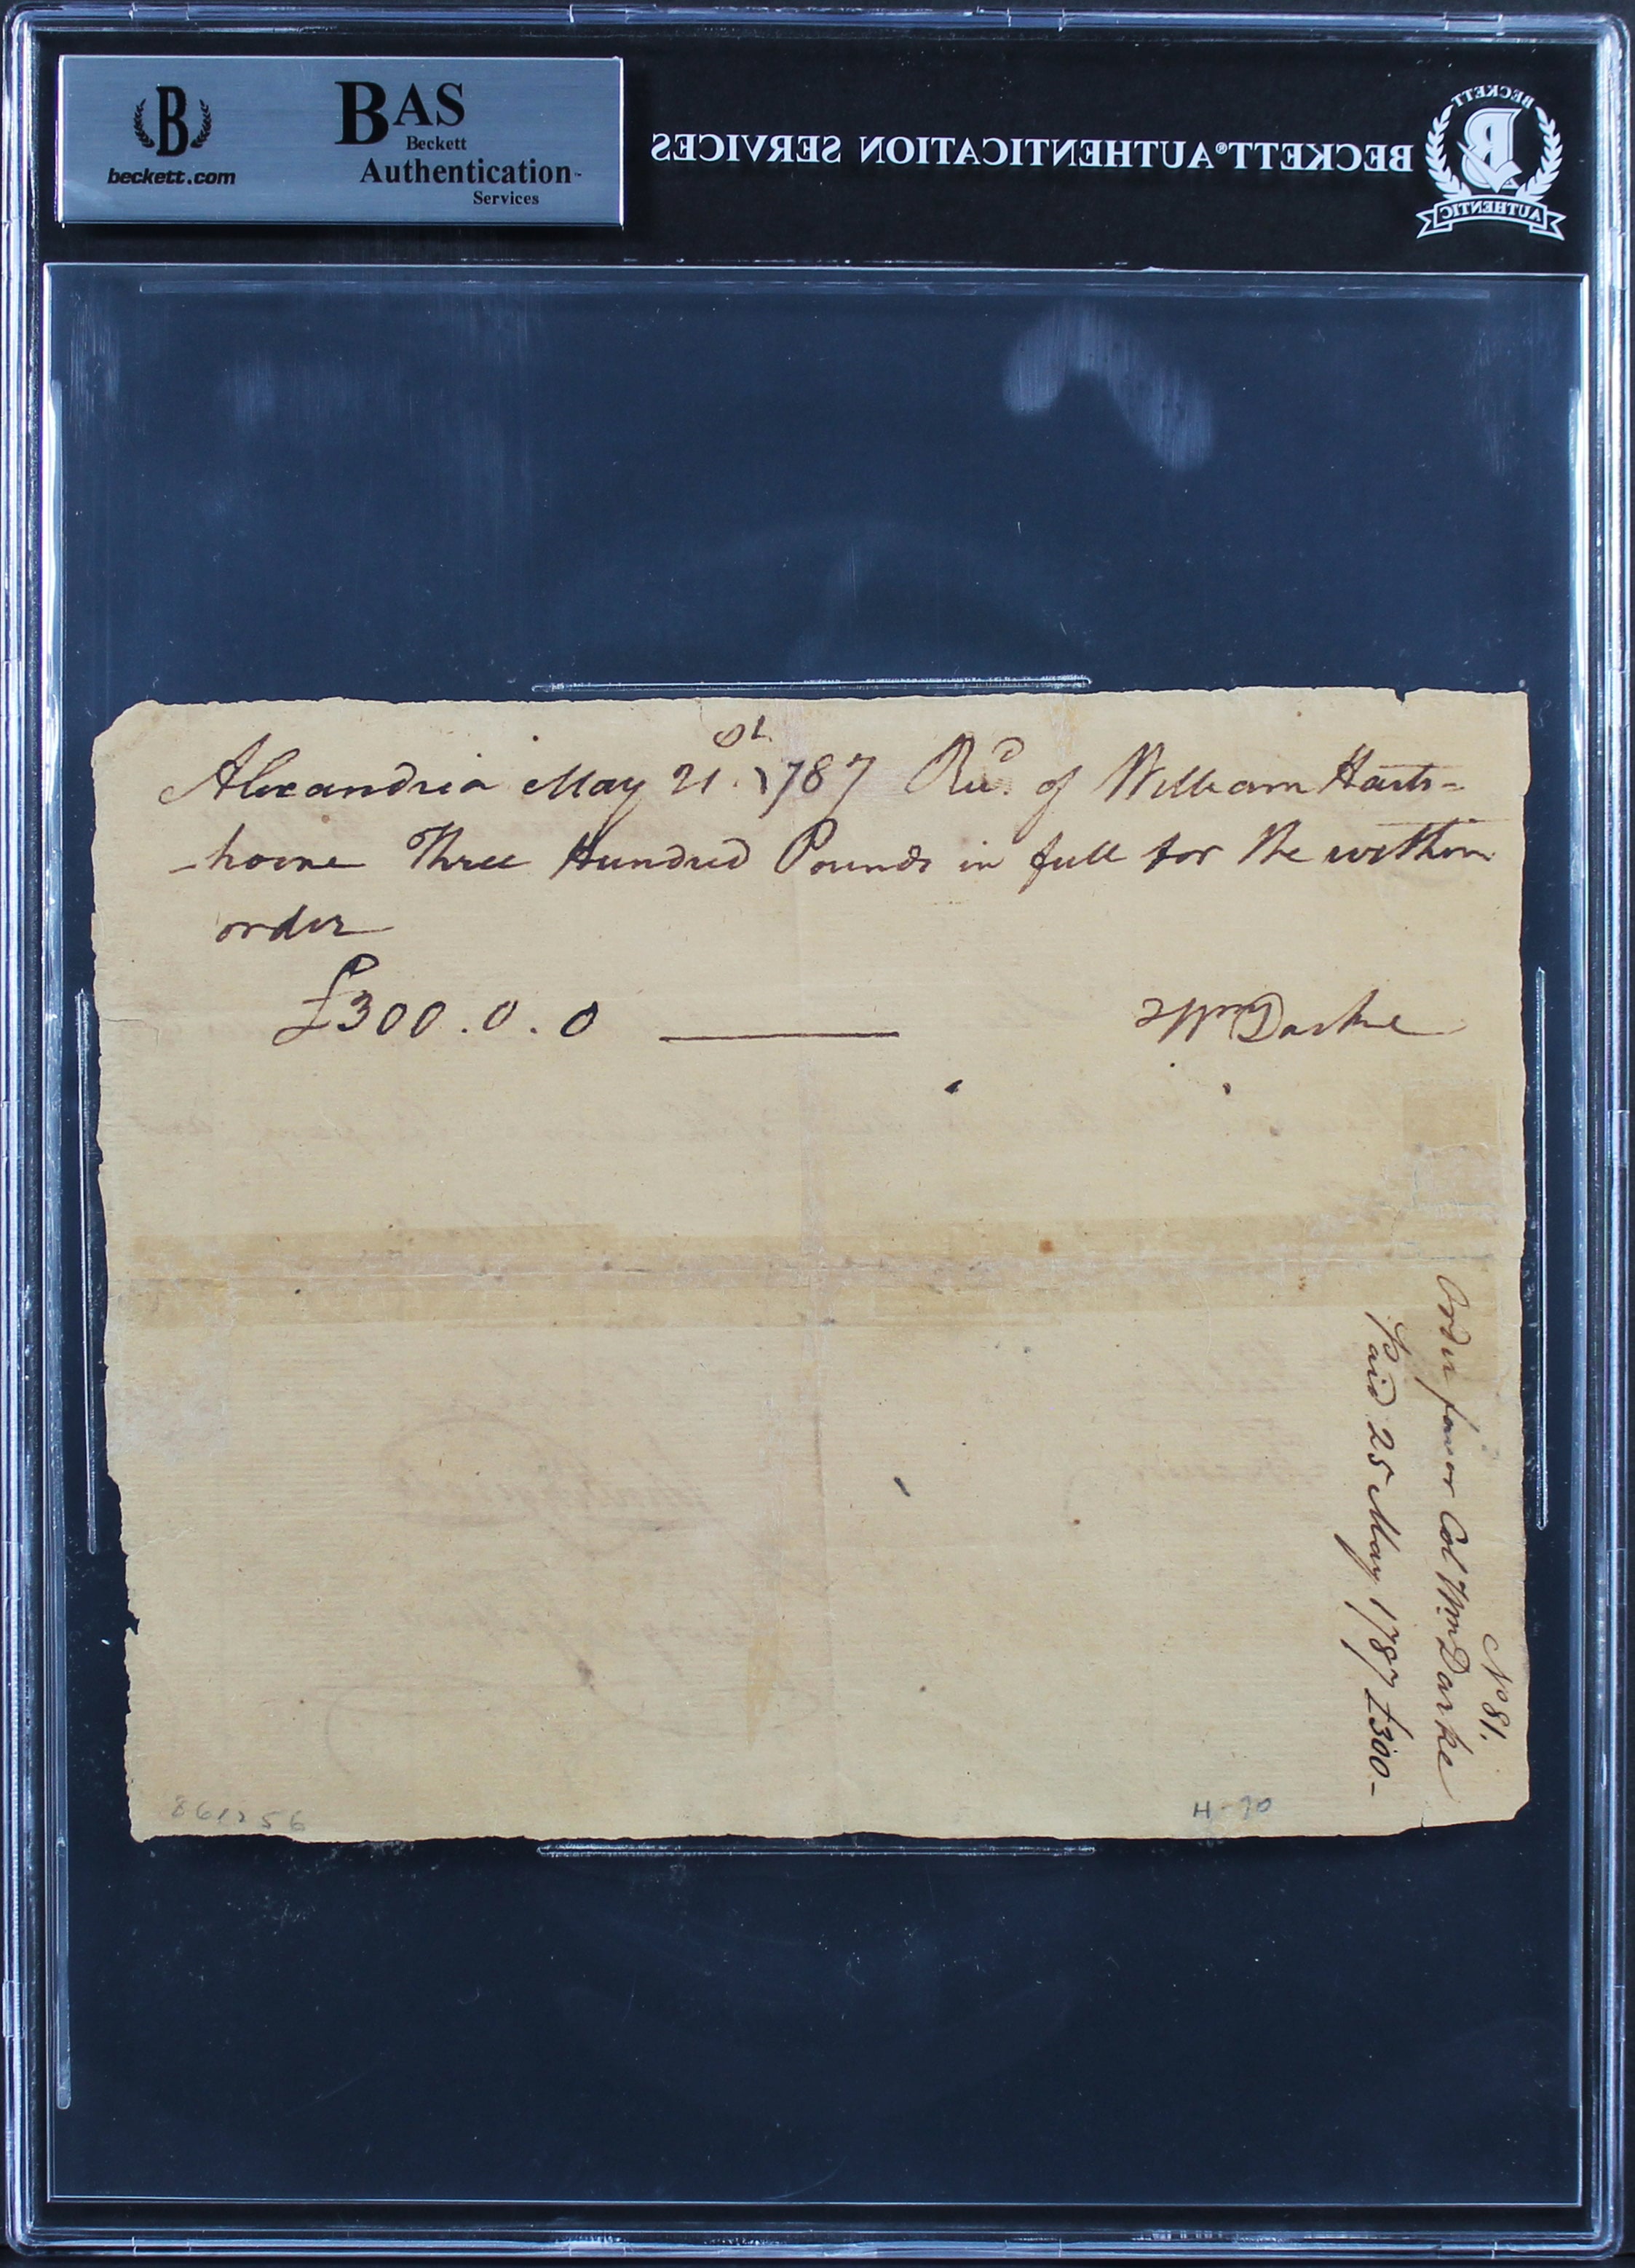 B
beckett.com
BAS
Beckett
Authentication™
Services
BECKETT® AUTHENTICATION SERVICES
BECKETT
B
AUTHENTIC
Alexandria May 21st. 1787 Recd. of William Harts=
-horne Three Hundred Pounds in full for the within
order
£300.0.0
Wm Darke
No 81.
Order favor Col Wm Darke
Paid 25 May 1787 £300-
861256
H-70